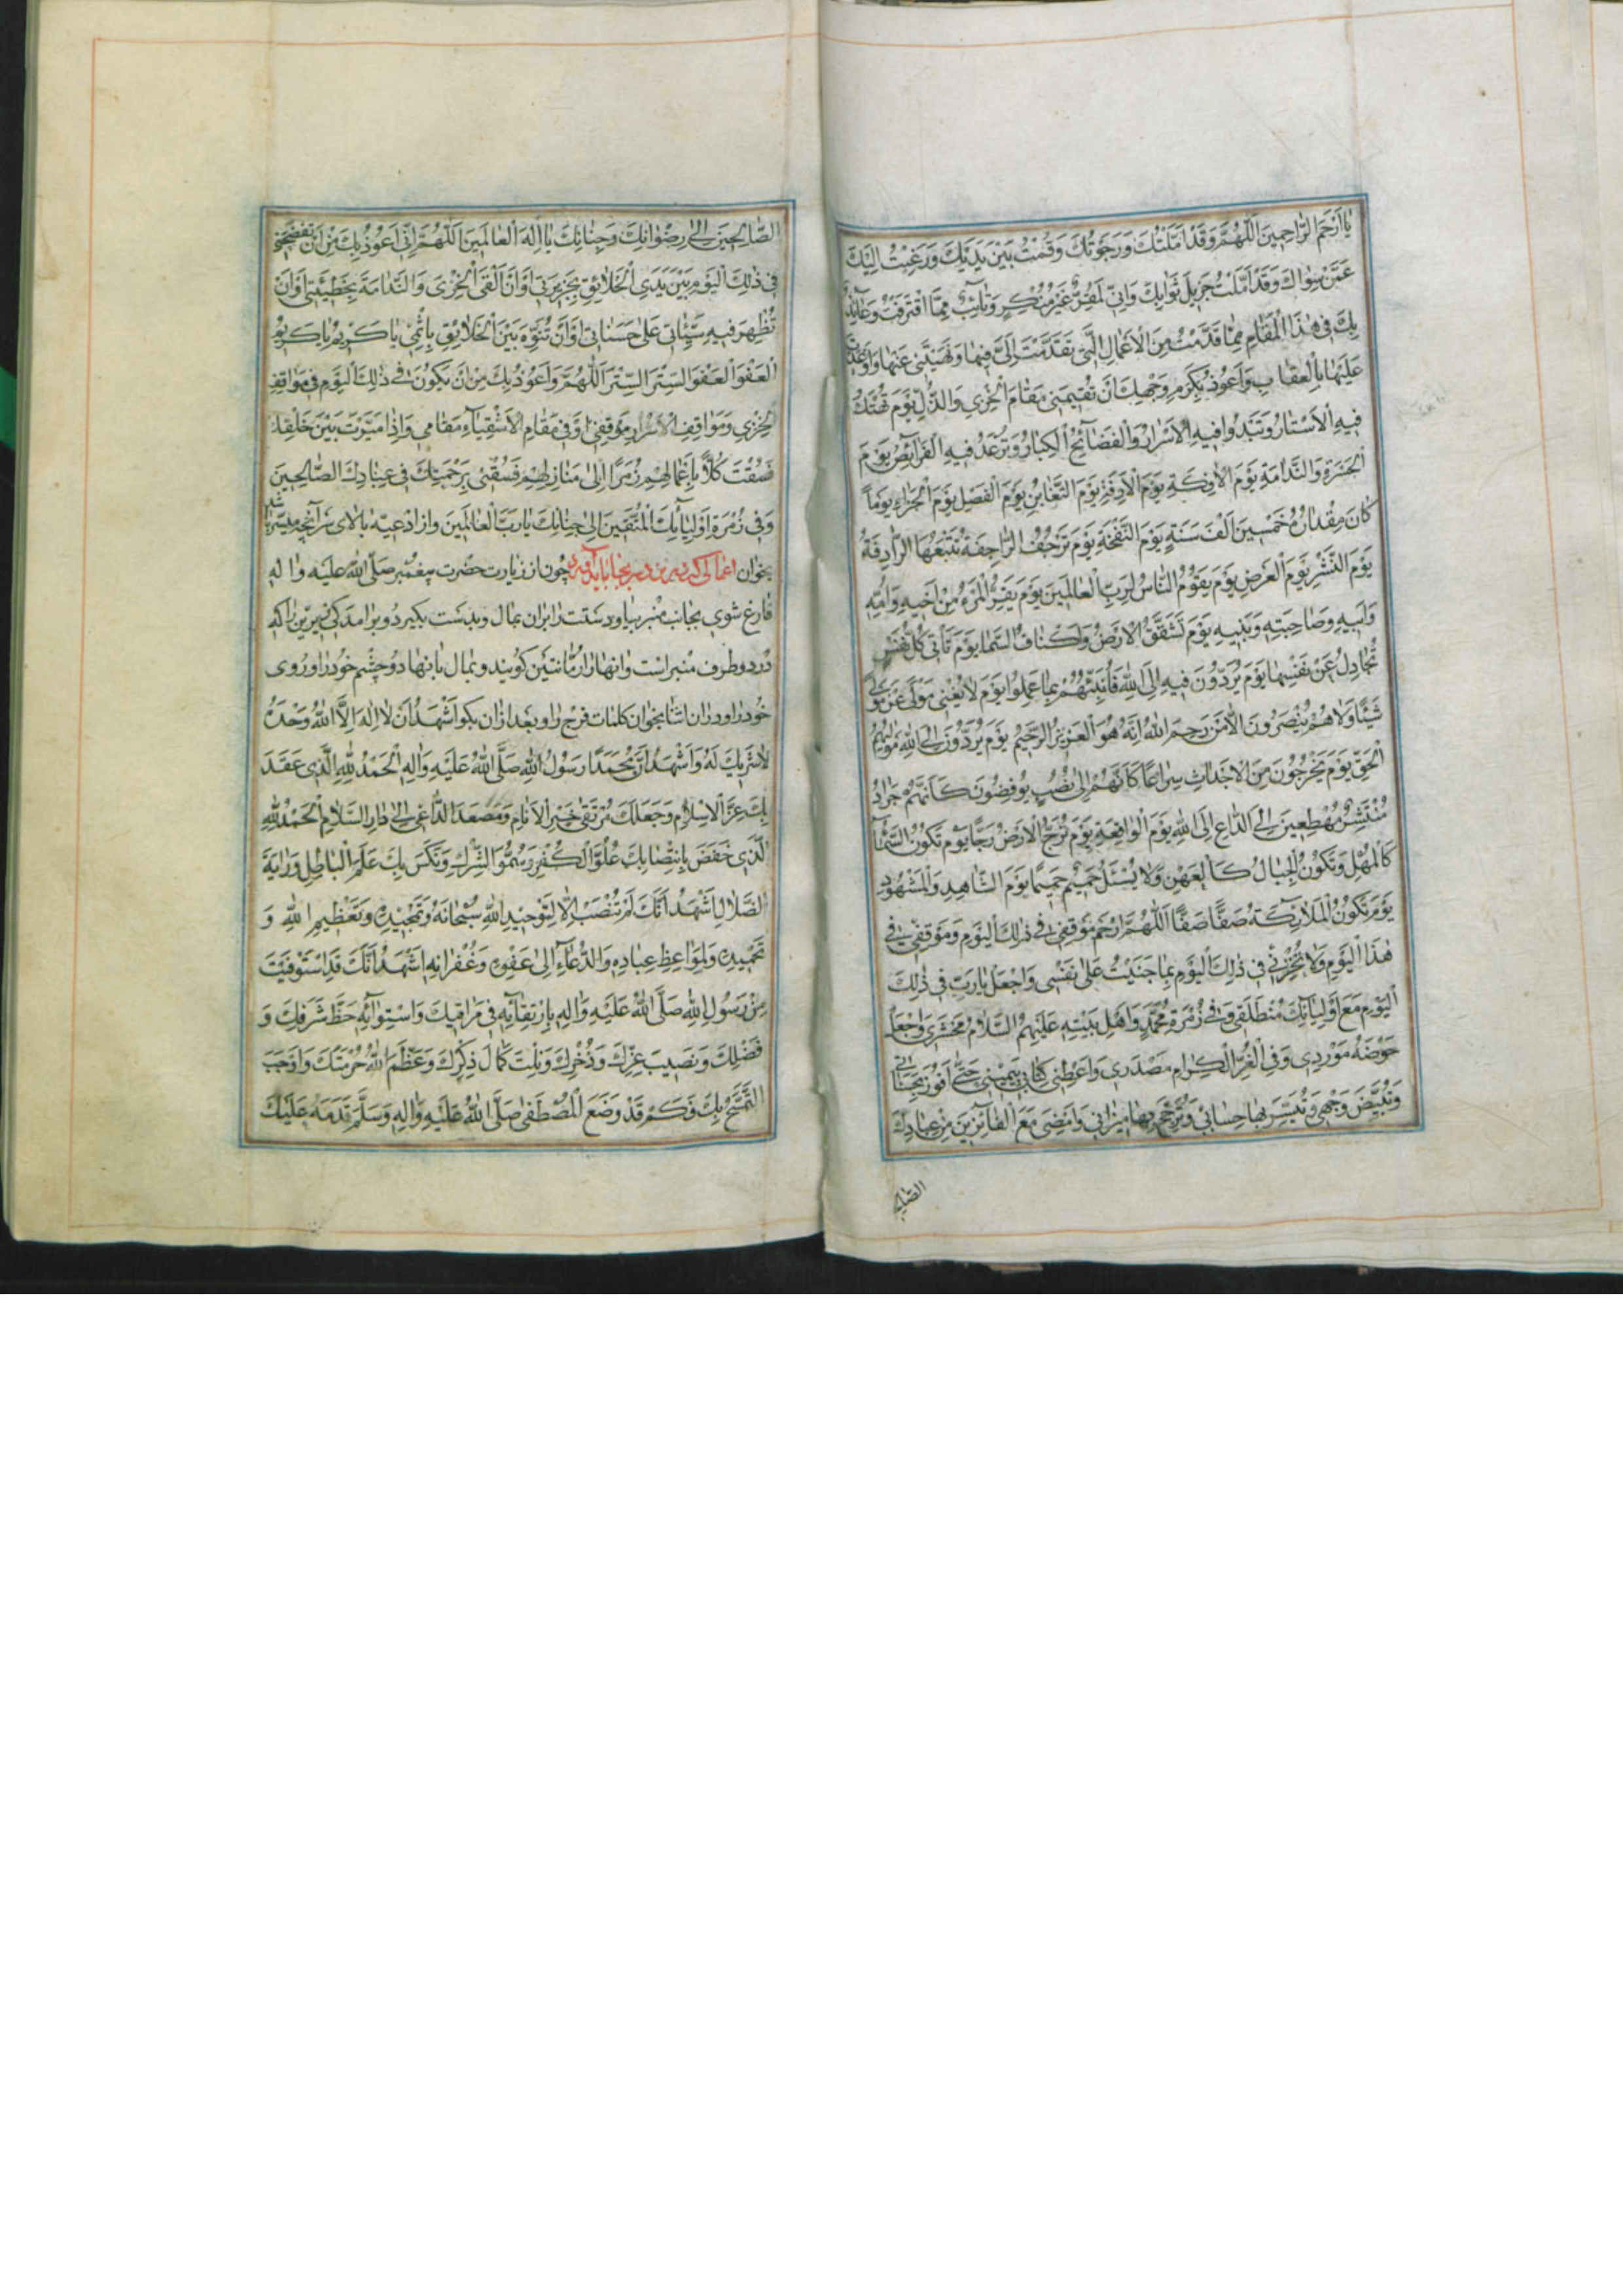 يٰا اَرْحَمَ الرّٰاحِمينَ اَللّٰهُمَّ وَقَدْ اَمَّلْتُكَ وَرَجَوْتُكَ وَقُمْتُ بَيْنَ يَدَيْكَ وَرَغِبْتُ اِلَيْكَ
عَمَّنْ سِوٰاكَ وَقَدْ اَمَّلْتُ جَزيلَ ثَوٰابِكَ وَاِنّي لَمُقِرٌّ غَيْرُ مُنْكِرٍ وَتٰائِبٌ مِمَّا اقْتَرَفْتُ وَعٰائِذٌ
بِكَ في هٰذَا الْمَقٰامِ مِمّٰا قَدَّمْتُ مِنَ الْاَعْمٰالِ الَّتي تَقَدَّمْتَ اِلَيَّ فيهٰا وَنَهَيْتَني عَنْهٰا وَاَوْعَدْتَ
عَلَيْهٰا بِالْعِقٰابِ وَاَعُوذُ بِكَرَمِ وَجْهِكَ اَنْ تُقيمَني مَقٰامَ الْخِزْيِ وَالذُّلِّ يَوْمَ تُهْتَكُ
فيهِ الْاَسْتٰارُ وَتَبْدُوا فيهِ الْاَسْرٰارُ وَالْفَضٰائِحُ الْكِبٰارُ وَتُرْعَدُ فيهِ الْفَرٰائِصُ يَوْمَ
الْحَسْرَةِ وَالنَّدٰامَةِ يَوْمَ الْاٰفِكَةِ يَوْمَ الْاٰزِفَةِ يَوْمَ التَّغٰابُنِ يَوْمَ الْفَصْلِ يَوْمَ الْجَزٰاءِ يَوْماً
كٰانَ مِقْدٰارُهُ خَمْسينَ اَلْفَ سَنَةٍ يَوْمَ النَّفْخَةِ يَوْمَ تَرْجُفُ الرّٰاجِفَةُ تَتْبَعُهَا الرّٰادِفَةُ
يَوْمَ النَّشْرِ يَوْمَ الْعَرْضِ يَوْمَ يَقُومُ النّٰاسُ لِرَبِّ الْعٰالَمينَ يَوْمَ يَفِرُّ الْمَرْءُ مِنْ اَخيهِ وَاُمِّهِ
وَاَبيهِ وَصٰاحِبَتِهِ وَبَنيهِ يَوْمَ تَشَقَّقُ الْاَرْضُ وَاَكْنٰافُ السَّمٰاءِ يَوْمَ تَأْتي كُلُّ نَفْسٍ
تُجٰادِلُ عَنْ نَفْسِهٰا يَوْمَ يُرَدُّونَ فيهِ اِلَى اللّٰهِ فَيُنَبِّئُهُمْ بِمٰا عَمِلُوا يَوْمَ لٰا يُغْني مَوْلًى عَنْ مَوْلًى
شَيْئًا وَلٰا هُمْ يُنْصَرُونَ اِلّٰا مَنْ رَحِمَ اللّٰهُ اِنَّهُ هُوَ الْعَزيزُ الرَّحيمُ يَوْمَ يُرَدُّونَ اِلَى اللّٰهِ مَوْلٰيهُمُ
الْحَقِّ يَوْمَ يَخْرُجُونَ مِنَ الْاَجْدٰاثِ سِرٰاعًا كَاَنَّهُمْ اِلٰى نُصُبٍ يُوفِضُونَ كَاَنَّهُمْ جَرٰادٌ
مُنْتَشِرٌ مُهْطِعينَ اِلَى الدّٰاعِ اِلَى اللّٰهِ يَوْمَ الْوٰاقِعَةِ يَوْمَ تُرَجُّ الْاَرْضُ رَجًّا يَوْمَ تَكُونُ السَّمٰاءُ
كَالْمُهْلِ وَتَكُونُ الْجِبٰالُ كَالْعِهْنِ وَلٰا يَسْئَلُ حَميمٌ حَميمًا يَوْمَ الشّٰاهِدِ وَالْمَشْهُودِ
يَوْمَ تَكُونُ الْمَلٰائِكَةُ صَفًّا صَفًّا اَللّٰهُمَّ ارْحَمْ مَوْقِفي في ذٰلِكَ الْيَوْمِ وَمَوْقِفي في
هٰذَا الْيَوْمِ وَلٰا تُخْزِني في ذٰلِكَ الْيَوْمِ بِمٰا جَنَيْتُ عَلٰى نَفْسي وَاجْعَلْ يٰا رَبِّ في ذٰلِكَ
الْيَوْمِ مَعَ اَوْلِيٰائِكَ مُنْطَلَقي وَفي زُمْرَةِ مُحَمَّدٍ وَاَهْلِ بَيْتِهِ عَلَيْهِمُ السَّلٰامُ مَحْشَري وَاجْعَلْ
حَوْضَهُ مَوْرِدي وَفي الْغُرِّ الْكِرٰامِ مَصْدَري وَاَعْطِني كِتٰابي بِيَميني حَتّٰى اَفُوزَ بِحَسَنٰاتي
وَتُبَيِّضَ وَجْهي وَتُيَسِّرَ بِهٰا حِسٰابي وَتُرَجِّحَ بِهٰا ميزٰاني وَاَمْضِيَ مَعَ الْفٰائِزينَ مِنْ عِبٰادِكَ
الصّٰالِحينَ اِلٰى رِضْوٰانِكَ وَجِنٰانِكَ يٰا اِلٰهَ الْعٰالَمينَ اَللّٰهُمَّ اِنّي اَعُوذُ بِكَ مِنْ اَنْ تَفْضَحَني
في ذٰلِكَ الْيَوْمِ بَيْنَ يَدَيِ الْخَلٰائِقِ بِجَريرَتي اَوْ اَنْ اَلْقَى الْخِزْيَ وَالنَّدٰامَةَ بِخَطيئَتي اَوْ اَنْ
تُظْهِرَ فيهِ سَيِّئٰاتي عَلٰى حَسَنٰاتي اَوْ اَنْ تُنَوِّهَ بَيْنَ الْخَلٰائِقِ بِاِثْمي يٰا كَريمُ يٰا كَريمُ
الْعَفْوَ الْعَفْوَ السَّتْرَ السَّتْرَ اَللّٰهُمَّ وَاَعُوذُ بِكَ مِنْ اَنْ يَكُونَ في ذٰلِكَ الْيَوْمِ في مَوٰاقِفِ
الْخِزْيِ وَمَوٰاقِفِ الْاَشْرٰارِ مَوْقِفي اَوْ في مَقٰامِ الْاَشْقِيٰاءِ مَقٰامي وَاِذٰا مَيَّزْتَ بَيْنَ خَلْقِكَ
فَسُقْتَ كُلًّا بِاَعْمٰالِهِمْ زُمَرًا اِلٰى مَنٰازِلِهِمْ فَسُقْني بِرَحْمَتِكَ في عِبٰادِكَ الصّٰالِحينَ
وَفي زُمْرَةِ اَوْلِيٰائِكَ الْمُتَّقينَ اِلٰى جِنٰانِكَ يٰا رَبَّ الْعٰالَمينَ واز ادعيه بالاى سر آنچه ميسّر باشد
بخوان اعمالى كه در نزد منبر بجا بايد آورد چون از زيارت حضرت پيغمبر صَلَّى اللّٰهُ عَلَيْهِ وَاٰلِهِ
فارغ شوى بجانب منبر بيا و دستت را بر ان بمال و بدست بگير دو بر امدگى زيرين را كه
در دو طرف منبر است و انها را رمّانتين گويند و بمال بانها دو چشم خود را و روى
خود را و در ان اثنا بخوان كلمات فرج را و بعد از ان بگو اَشْهَدُ اَنْ لٰا اِلٰهَ اِلَّا اللّٰهُ وَحْدَهُ
لٰا شَريكَ لَهُ وَاَشْهَدُ اَنَّ مُحَمَّدًا رَسُولُ اللّٰهِ صَلَّى اللّٰهُ عَلَيْهِ وَاٰلِهِ اَلْحَمْدُ لِلّٰهِ الَّذي عَقَدَ
بِكَ عِزَّ الْاِسْلٰامِ وَجَعَلَكَ مُرْتَقٰى خَيْرِ الْاَنٰامِ وَمَصْعَدَ الدّٰاعي اِلٰى دٰارِ السَّلٰامِ اَلْحَمْدُ لِلّٰهِ
الَّذي خَفَضَ بِانْتِصٰابِكَ عُلُوَّ الْكُفْرِ وَسُمُوَّ الشِّرْكِ وَنَكَسَ بِكَ عَلَمَ الْبٰاطِلِ وَرٰايَةَ
الضَّلٰالِ اَشْهَدُ اَنَّكَ لَمْ تُنْصَبْ اِلّٰا لِتَوْحيدِ اللّٰهِ سُبْحٰانَهُ وَتَمْجيدِهِ وَتَعْظيمِ اللّٰهِ وَ
تَحْميدِهِ وَلِمَوٰاعِظِ عِبٰادِهِ وَالدُّعٰاءِ اِلٰى عَفْوِهِ وَغُفْرٰانِهِ اَشْهَدُ اَنَّكَ قَدِ اسْتَوْفَيْتَ
مِنْ رَسُولِ اللّٰهِ صَلَّى اللّٰهُ عَلَيْهِ وَاٰلِهِ بِارْتِقٰائِهِ في مَرٰاقيكَ وَاسْتِوٰائِهِ حَظَّ شَرَفِكَ وَ
فَضْلِكَ وَنَصيبَ عِزِّكَ وَذُخْرِكَ وَنِلْتَ كَمٰالَ ذِكْرِكَ وَعَظَّمَ اللّٰهُ حُرْمَتَكَ وَاَوْجَبَ
التَّمَسُّحَ بِكَ فَكَمْ قَدْ وَضَعَ الْمُصْطَفٰى صَلَّى اللّٰهُ عَلَيْهِ وَاٰلِهِ وَسَلَّمَ قَدَمَهُ عَلَيْكَ